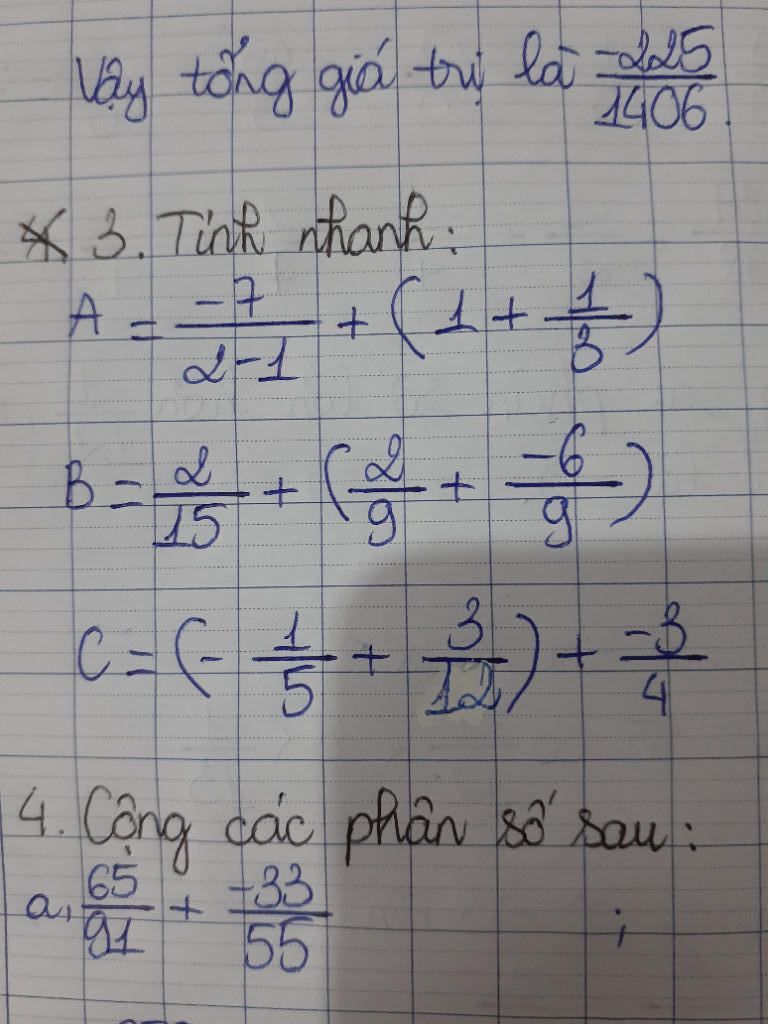 Vậy tổng giá trị là -225/1406.
* 3. Tính nhanh:
A = -7/2-1 + (1 + 1/3)
B = 2/15 + (2/9 + -6/9)
C = (- 1/5 + 3/12) + -3/4
4. Cộng các phân số sau:
a, 65/91 + -33/55 ;